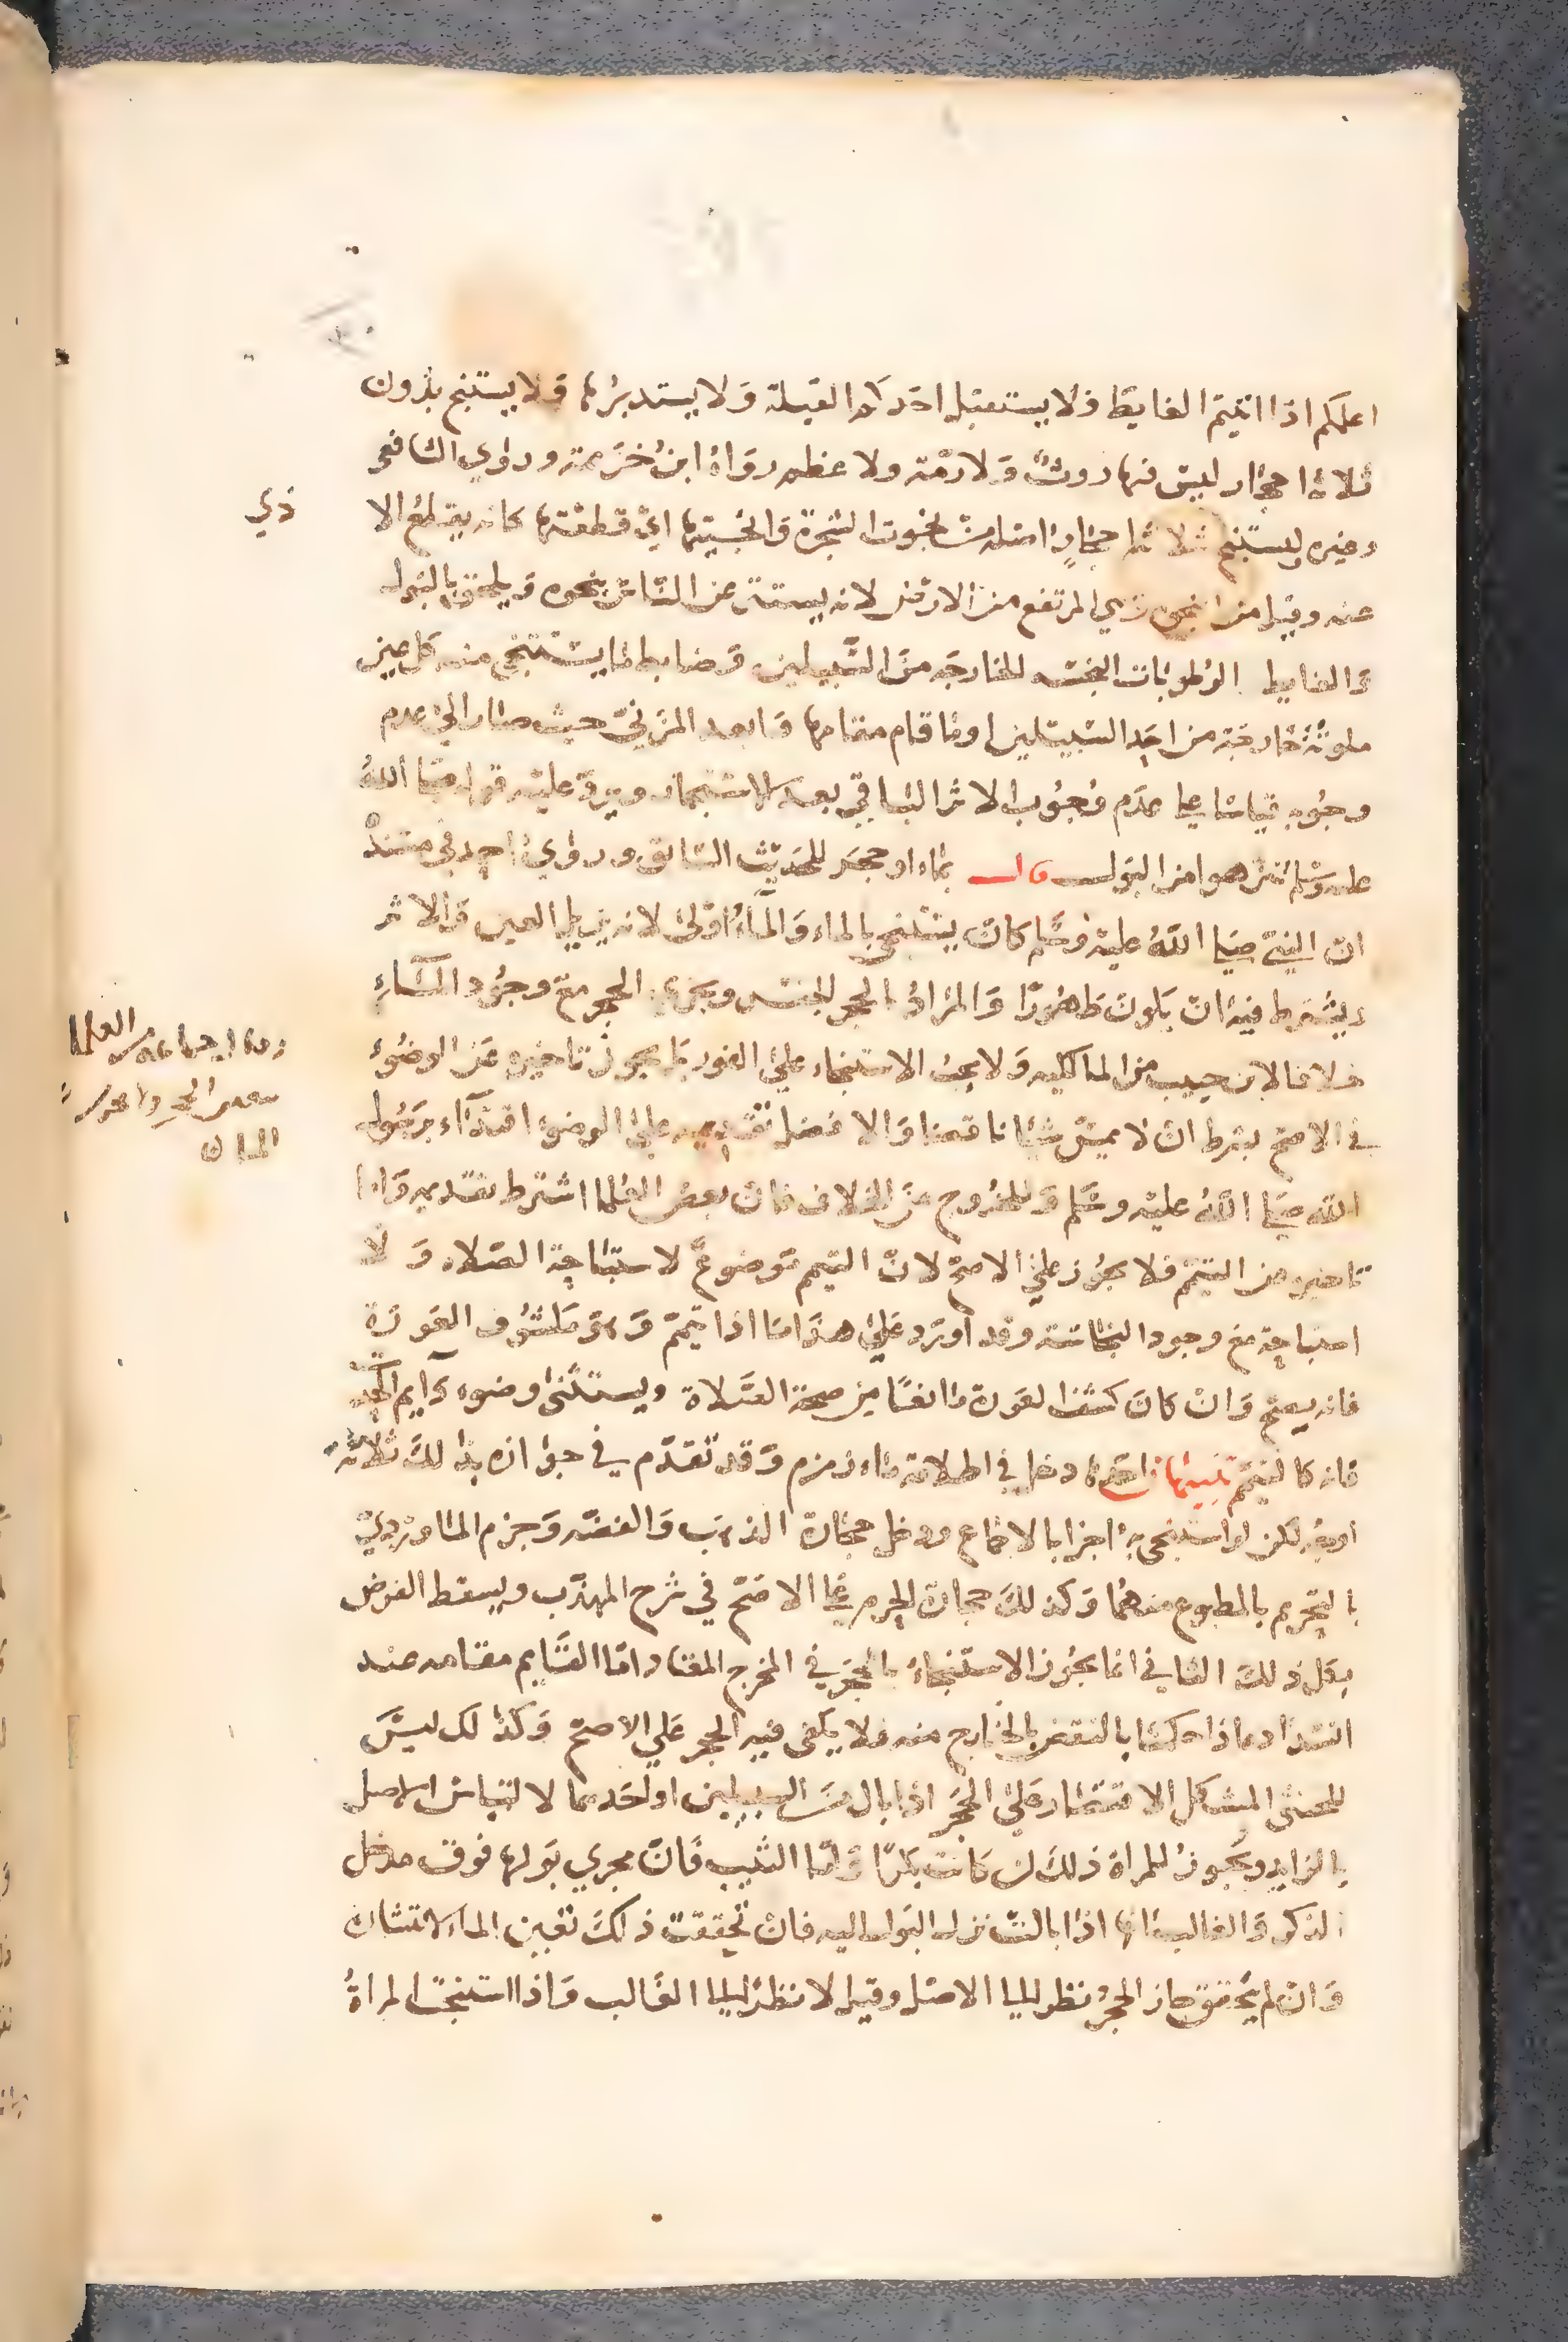 اعلمكم اذا اتيتم الغايط فلا يستقبل احدكم القبلة ولا يستدبرها ولا يستنج بدون
ثلاثة احجار ليس فيها روث ولا رمة ولا عظم رواه ابن خزيمة وروي الشافعي
وغيره وليستنج بثلاثة احجار اصله من نجوت الشجرة وانجيتها اي قطعتها كانه يقطع الا
ذي
عنه وقيل من النجوة وهي المرتفع من الارض لانه يستتر عن الناس بنجوه ويلحق بالبول
والغايط الرطوبات النجسة الخارجة من السبيلين وضابط ما يستنجي منه كل عين
ملوثة خارجة من احد السبيلين او ما قام مقامها وابعد المزني حيث صار الي عدم
وجوبه قياسا علي عدم وجوب الاثر الباقي بعد الاستجمار ويرد عليه قوله صلي الله
عليه وسلم تنزهوا من البول قال بماء او حجر للحديث السابق وروي احمد في مسنده
ان النبي صلي الله عليه وسلم كان يستنجي بالماء والماء اولي لانه يزيل العين والاثر
ويشترط فيه ان يكون طهورا والمراد بالحجر الجنس ويجزي الحجر مع وجود الماء
خلافا لابن حبيب من المالكية ولا يجب الاستنجاء علي الفور بل يجوز تاخيره عن الوضوء
في الاصح بشرط ان لا يمس شيا ناقضا والافضل تقديمه علي الوضوء اقتداء برسول
الله صلي الله عليه وسلم وللخروج من الخلاف فان بعض العلما اشترط تقديمه واما
تاخيره عن التيمم فلا يجوز علي الاصح لان التيمم موضوع لاستباحة الصلاة ولا
استباحة مع وجود النجاسة وقد اورد علي هذا ما اذا تيمم وهو مكشوف العورة
فانه يصح وان كان كشف العورة مانعا من صحة الصلاة ويستثني وضوء دايم الحدث
فانه كالتيمم تنبيهان احدهما دخل في اطلاقه ماء زمزم وقد تقدم في جوازه بذلك ثلاثة
اوجه لكن لو استنجي به اجزا بالاجماع ودخل حجارة الذهب والفضة وجزم الماوردي
بالتحريم بالمطبوع منهما وكذلك حجارة الحرم علي الاصح في شرح المهذب ويسقط الفرض
بكل ذلك الثاني انما يجوز الاستنجاء بالحجر في المخرج المعتاد اما القايم مقامه عند
انسداده اذا حكمنا بالنقض بالخارج منه فلا يكفي فيه الحجر علي الاصح وكذا لك ليس
للخنثي المشكل الاقتصار علي الحجر اذا بال من السبيلين او احدهما لالتباس الاصل
بالزايد ويجوز للمراة ذلك ان كانت بكرا واما الثيب فان مجري بولها فوق مدخل
الذكر والغالب انها اذا بالت نزل البول اليه فان تحققت ذلك تعين الماء لانتشاره
وان لم يتحقق جاز الحجر نظر اليا الاصل وقيل لا نظر اليا الغالب واذا استنجت المراة